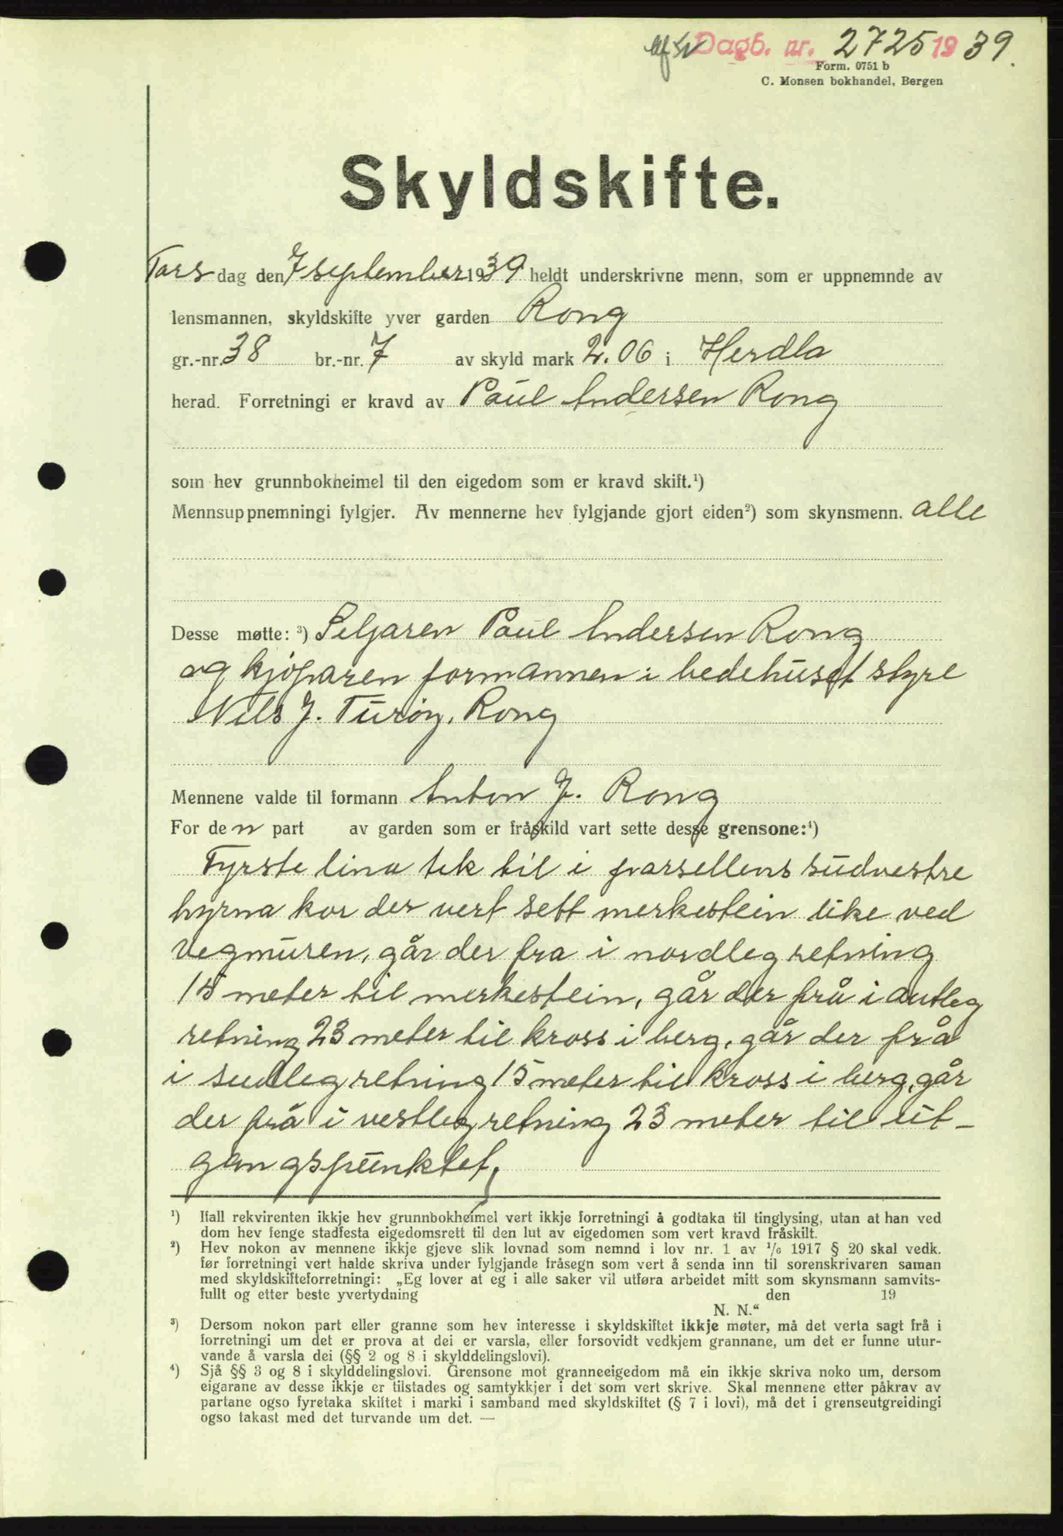 Dagb. nr. 2725 1939.
Form. 0751 b
C. Monsen bokhandel, Bergen
Skyldskifte.
Tors dag den 7 september 1939 heldt underskrivne menn, som er uppnemnde av
lensmannen, skyldskifte yver garden Rong
gr.-nr. 38 br.-nr. 7 av skyld mark 2.06 i Herdla
herad. Forretningi er kravd av Paul Andersen Rong
som hev grunnbokheimel til den eigedom som er kravd skift.¹)
Mennsuppnemningi fylgjer. Av mennerne hev fylgjande gjort eiden²) som skynsmenn. alle
Desse møtte: ³) Seljaren Paul Andersen Rong
og kjøparen formannen i bedehuset styre
Nils J. Turøy, Rong
Mennene valde til formann Anton J. Rong
For den part av garden som er fråskild vart sette desse grensone:⁴)
Fyrste lina tek til i parsellens sudvestre
hyrna kor der vert sett merkestein like ved
vegmuren, går der fra i nordleg retning
15 meter til merkestein, går der frå i austleg
retning 23 meter til kross i berg, går der frå
i sudleg retning 15 meter til kross i berg, går
der frå i vestleg retning 23 meter til ut-
gangspunktet,
¹) Ifall rekvirenten ikkje hev grunnbokheimel vert ikkje forretningi å godtaka til tinglysing, utan at han ved
dom hev fenge stadfesta eigedomsrett til den lut av eigedomen som vert kravd fråskilt.
²) Hev nokon av mennene ikkje gjeve slik lovnad som nemnd i lov nr. 1 av ¹/₆ 1917 § 20 skal vedk.
før forretningi vert halde skriva under fylgjande fråsegn som vert å senda inn til sorenskrivaren saman
med skyldskifteforretningi: „Eg lover at eg i alle saker vil utføra arbeidet mitt som skynsmann samvits-
fullt og etter beste yvertydning den 19
N. N.“
³) Dersom nokon part eller granne som hev interesse i skyldskiftet ikkje møter, må det verta sagt frå i
forretningi um det er prova at dei er varsla, eller forsovidt vedkjem grannane, um det er funne utur-
vande å varsla dei (§§ 2 og 8 i skylddelingslovi).
⁴) Sjå §§ 3 og 8 i skylddelingslovi. Grensone mot granneeigedom må ein ikkje skriva noko um, dersom
eigarane av desse ikkje er tilstades og samtykkjer i det som vert skrive. Skal mennene etter påkrav av
partane ogso fyretaka skiftet i marki i samband med skyldskiftet (§ 7 i lovi), må det i grenseutgreidingi
ogso takast med det turvande um det. —